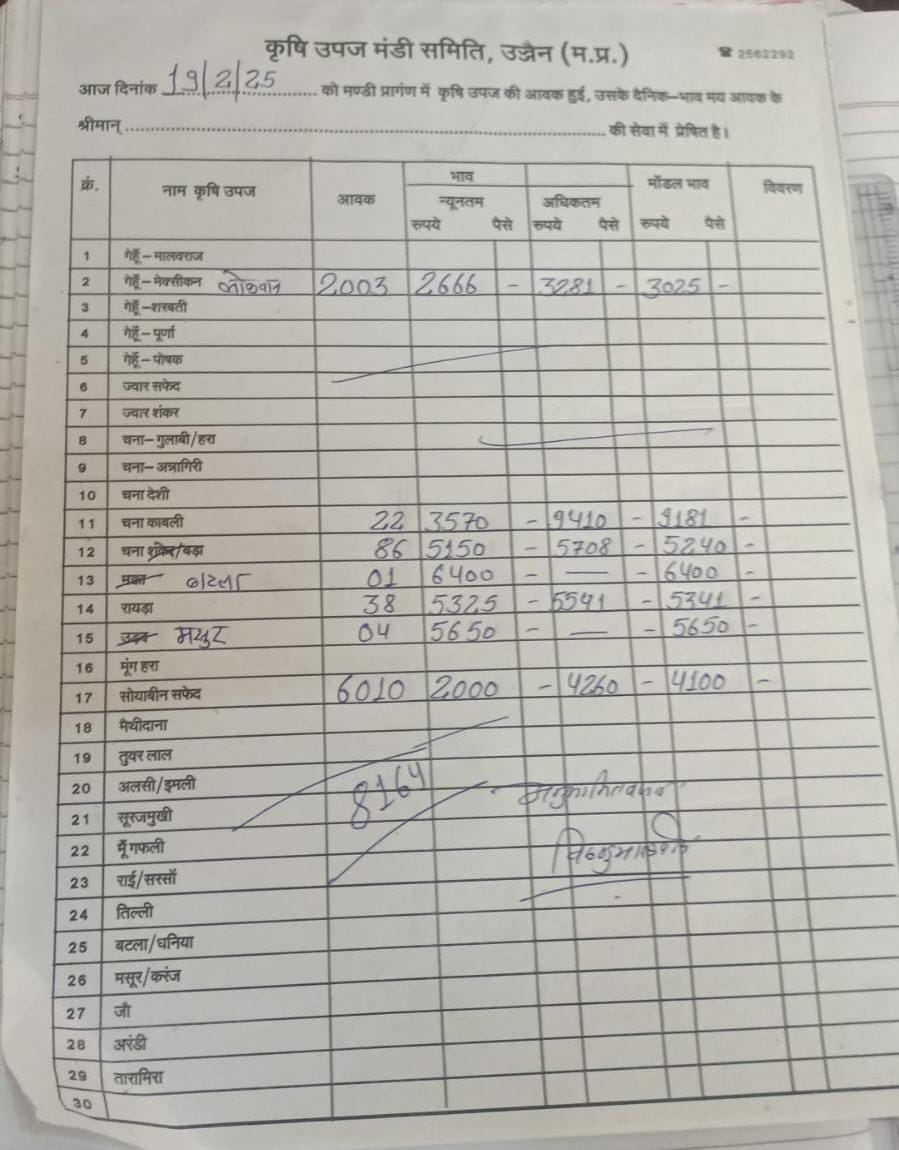 कृषि उपज मंडी समिति, उज्जैन (म.प्र.) ☎ 2562292
आज दिनांक 19/2/25 को मण्डी प्रागंण में कृषि उपज की आवक हुई, उसके दैनिक-भाव मय आवक के
श्रीमान् की सेवा में प्रेषित है।
क्रं. नाम कृषि उपज आवक भाव मॉडल भाव विवरण
न्यूनतम अधिकतम
रुपये पैसे रुपये पैसे रुपये पैसे
1 गेहूँ-मालवराज
2 गेहूँ-मेक्सीकन लोकवान 2003 2666 - 3281 - 3025 -
3 गेहूँ-शरबती
4 गेहूँ-पूर्णा
5 गेहूँ-पोषक
6 ज्वार सफेद
7 ज्वार शंकर
8 चना-गुलाबी/हरा
9 चना-अन्नागिरी
10 चना देशी
11 चना काबली 22 3570 - 9410 - 9181 -
12 चना शंकर/बड़ा 86 5150 - 5708 - 5240 -
13 मक्का बटला 01 6400 - — - 6400 -
14 रायड़ा 38 5325 - 5541 - 5341 -
15 उड़द मसुर 04 5650 - — - 5650 -
16 मूंग हरा
17 सोयाबीन सफेद 6010 2000 - 4260 - 4100 -
18 मैथीदाना
19 तुवर लाल
20 अलसी/इमली 8164
21 सूरजमुखी
22 मूँगफली
23 राई/सरसों
24 तिल्ली
25 बटला/धनिया
26 मसूर/करंज
27 जौ
28 अरंडी
29 तारामिरा
30